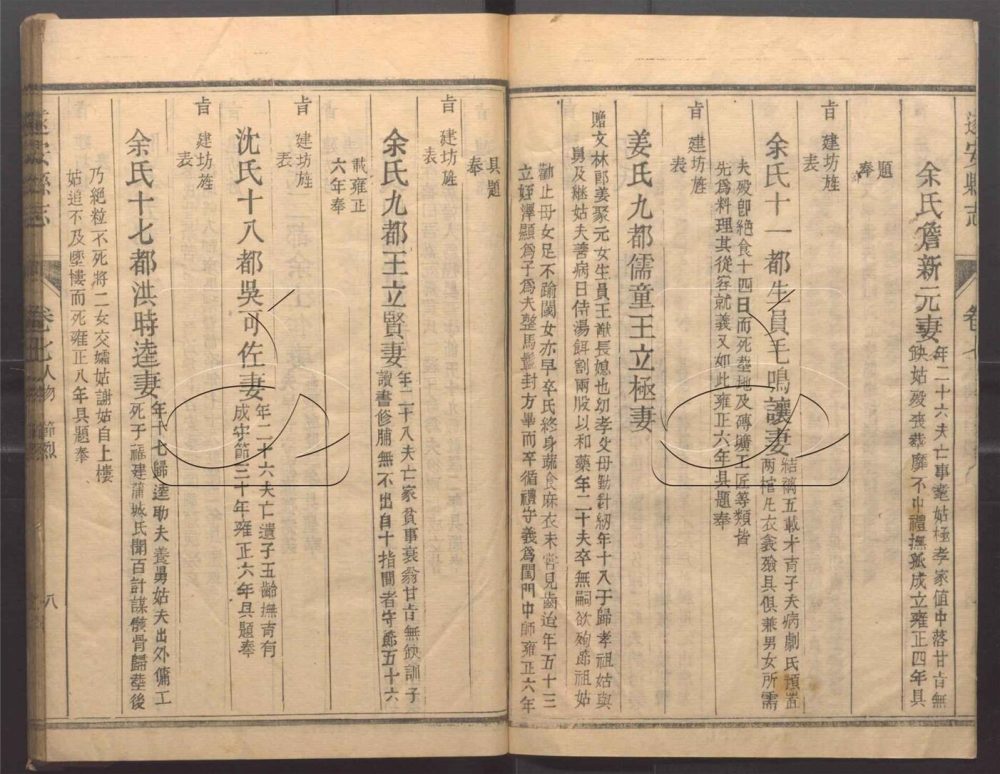 遂安縣志
卷七
余氏詹新元妻
年二十六夫亡事耄姑極孝家值中落甘旨無
缺姑歿喪葬靡不中禮撫孤成立雍正四年具
題奉
旨建坊旌表
余氏十一都生員毛鳴讓妻
結褵五載才育子夫病劇氏預置
兩棺凡衣衾殮具俱兼男女所需
夫歿卽絕食十四日而死塟地及磚壙工匠等類皆
先爲料理其從容就義又如此雍正六年具題奉
旨建坊旌表
姜氏九都儒童王立極妻
贈文林郎姜聚元女生員王猷長媳也幼孝父母勤針紉年十八于歸孝祖姑與
舅及繼姑夫善病日侍湯餌割兩股以和藥年二十夫卒無嗣欲殉節祖姑
勸止母女足不踰閫女亦早卒氏終身蔬食麻衣未嘗見齒迨年五十三
立姪澤顯爲子爲夫整馬鬛封方畢而卒循禮守義爲閨門中師雍正六年
具題奉
旨建坊旌表
余氏九都王立賢妻
年二十八夫亡家貧事衰翁甘旨無缺訓子
讀書修脯無不出自十指間者守節五十六
載雍正六年奉
旨建坊旌表
沈氏十八都吳可佐妻
年二十六夫亡遺子五齡撫育有
成守節三十年雍正六年具題奉
旨建坊旌表
余氏十七都洪時逵妻
年十七歸逵助夫養舅姑夫出外傭工
死于福建蒲城氏聞百計謀骸骨歸塟後
乃絕粒不死將二女交孀姑謝姑自上樓
姑追不及墜樓而死雍正八年具題奉
遂安縣志
卷七人物 節烈
八